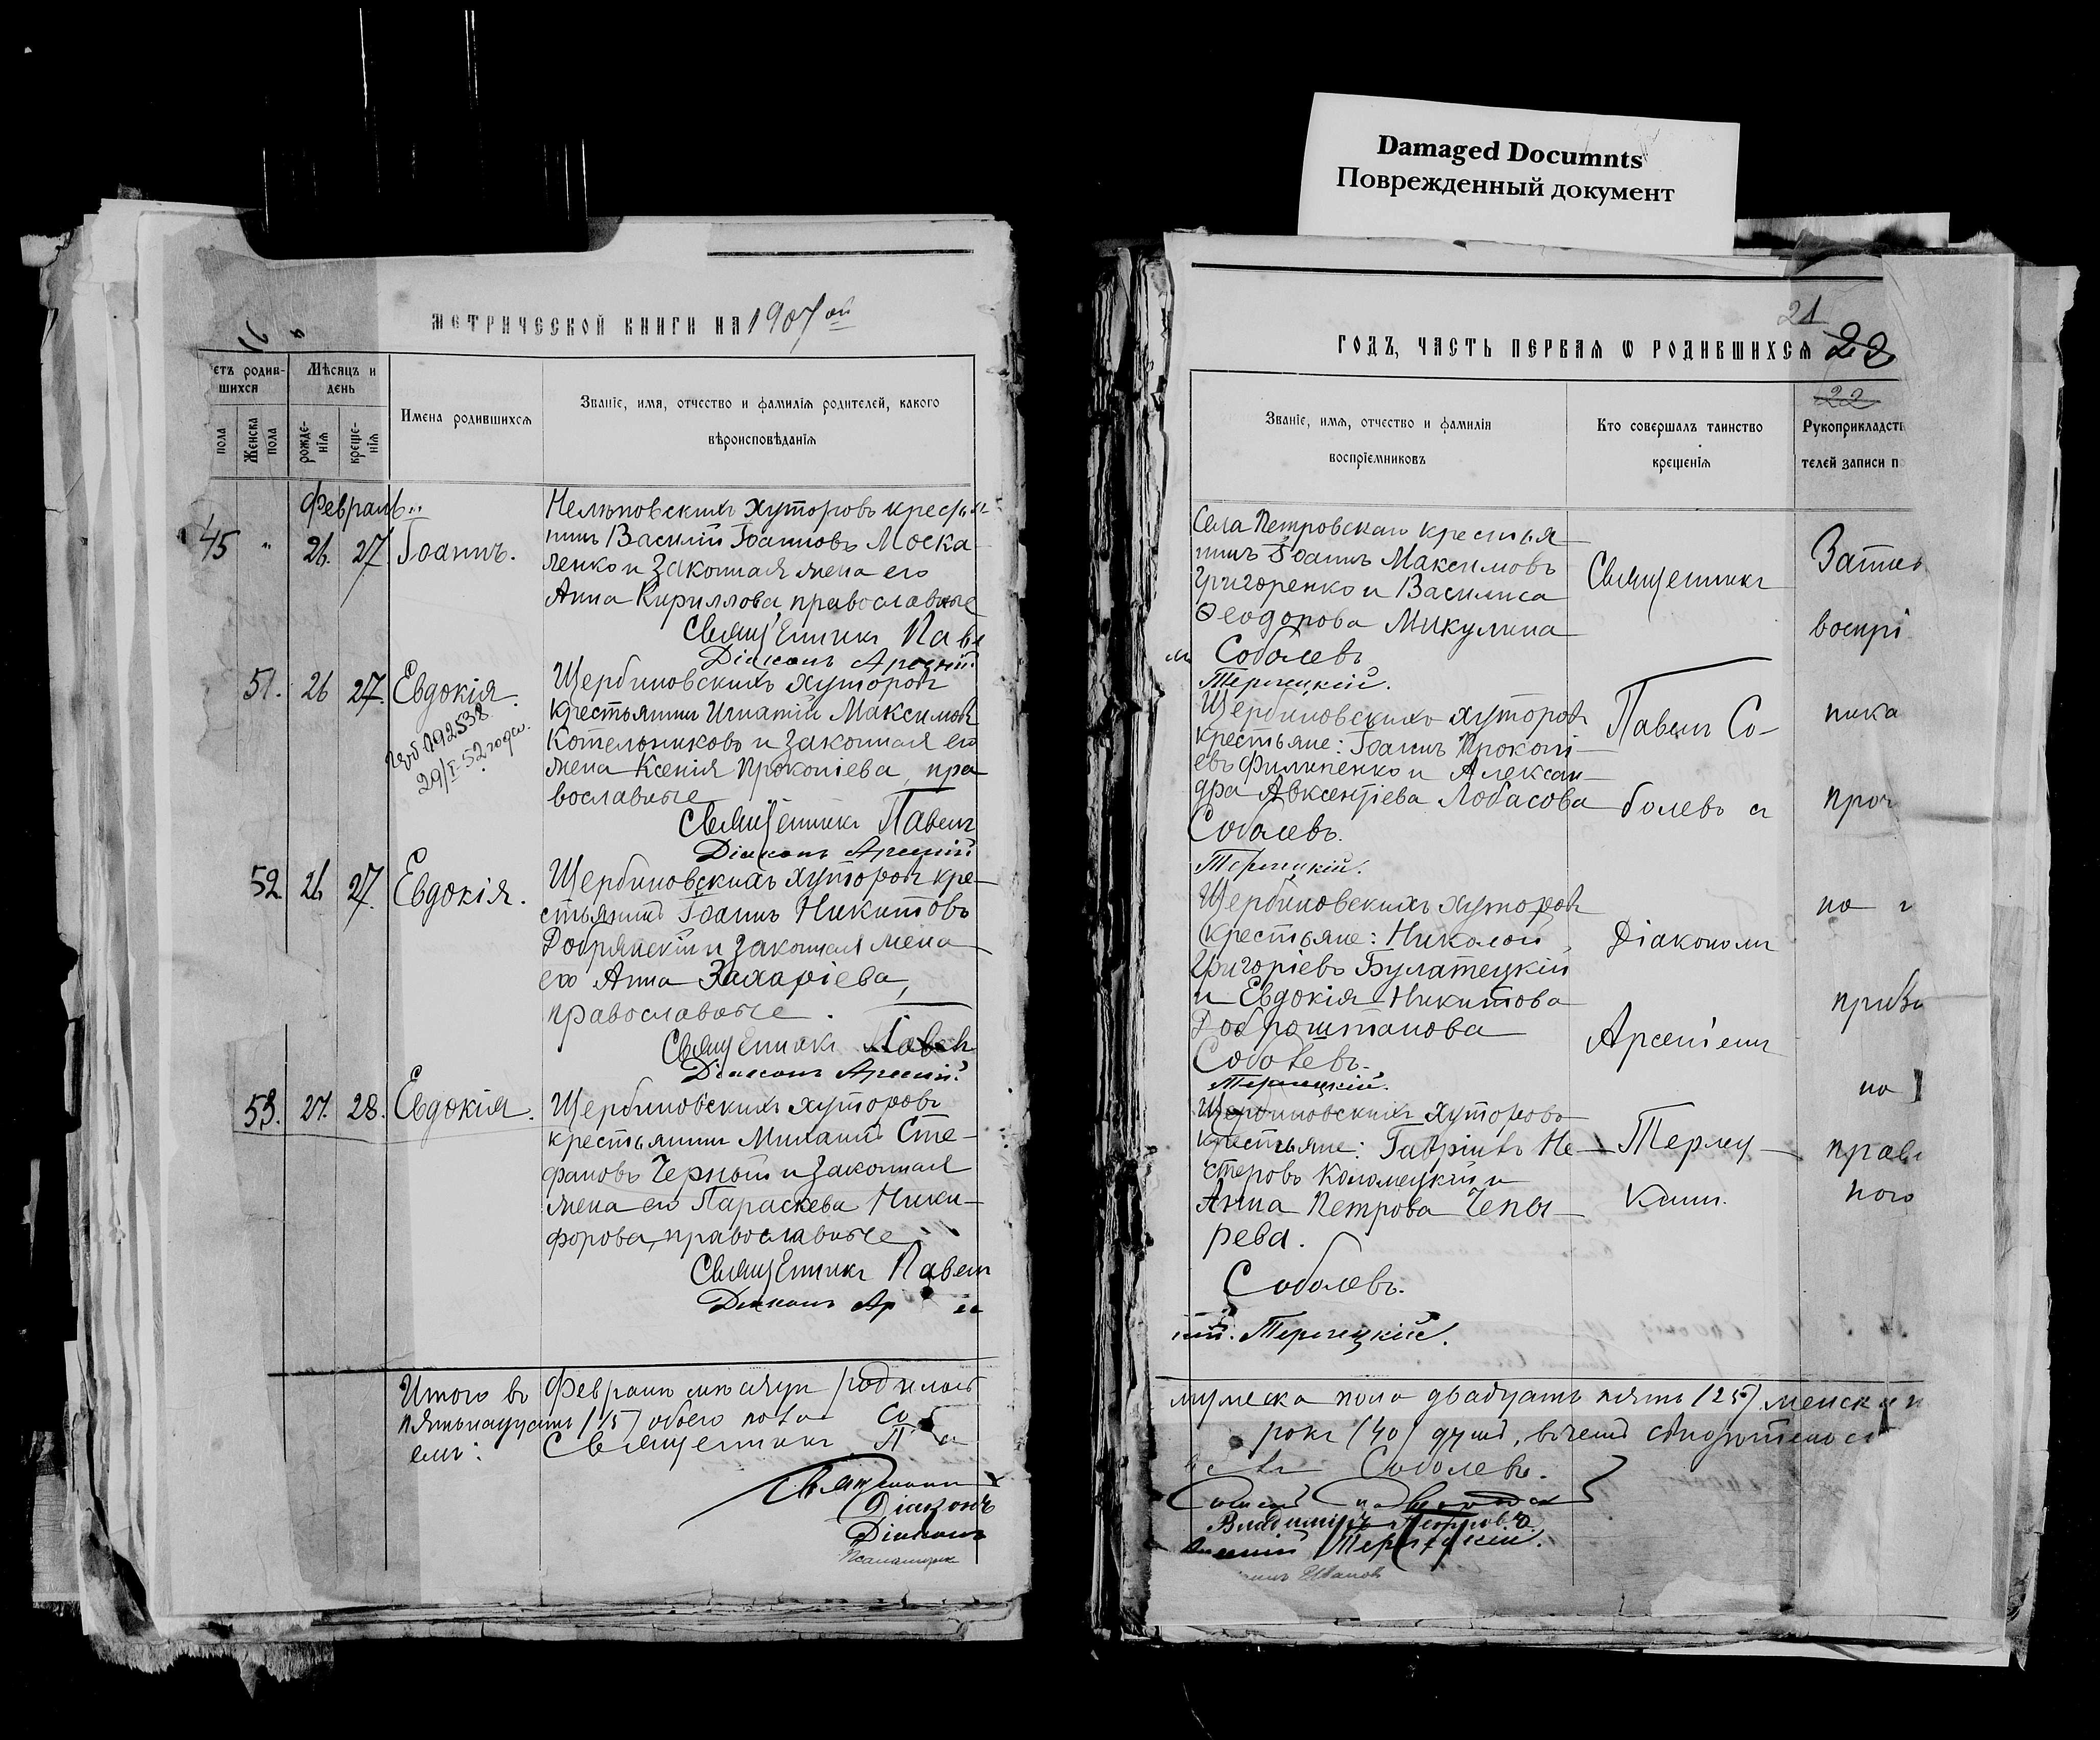 Damaged Documnts
Поврежденный документ
МЕТРИЧЕСКОЙ КНИГИ НА 1907 ой
етъ родив-
шихся
Мѣсяцъ и
день
пола
Женска
пола
рожде-
нія
креще-
нія
Имена родившихся
Званіе, имя, отчество и фамилія родителей, какого
вѣроисповѣданія
Февраль
45 " 26. 27. Іоаннъ.
Нелѣповскихъ хуторовъ крестья-
нинъ Василій Іоанновъ Моска-
ленко и законная жена его
Анна Кириллова, православные
Священникъ Пав
Діаконъ Арсеній
51. 26 27. Евдокія.
29/I-52 года.
Щербиновскихъ хуторовъ
крестьянинъ Игнатій Максимовъ
Котельниковъ и законная его
жена Ксенія Прокопіева, пра
вославные
Священникъ Павелъ
Діаконъ Арсеній
52. 26 27. Евдокія.
Щербиновскихъ хуторовъ кре-
стьянинъ Іоаннъ Никитовъ
Добрянскій и законная жена
его Анна Захаріева,
православные.
Священникъ Павелъ
Діаконъ Арсеній
53. 27. 28. Евдокія.
Щербиновскихъ хуторовъ
крестьянинъ Михаилъ Сте-
фановъ Черный и законная
жена его Параскева Ники-
форова, православные
Священникъ Павелъ
Діаконъ Ар й
Итого въ Февралѣ мѣсяцѣ родилось
пятьнадцать (15) обоего пола со
емъ: Священникъ П
Священникъ
Діаконъ
Діаконъ
Псаломщикъ
21
ГОДЪ, ЧАСТЬ ПЕРВАЯ Ѡ РОДИВШИХСЯ 22
22
Званіе, имя, отчество и фамилія
воспріемниковъ
Кто совершалъ таинство
крещенія
Рукоприкладст
телей записи п
Села Петровскаго крестья
нинъ Іоаннъ Максимовъ
Григоренко и Василиса
Ѳеодорова Микулина
Соболевъ
Терлецкій.
Щербиновскихъ хуторовъ
крестьяне: Іоаннъ Прокопі-
евъ Филипенко и Алексан-
дра Авксентіева Лобасова
Соболевъ.
Терлецкій.
Щербиновскихъ хуторовъ
крестьяне: Николай
Григоріевъ Булатецкій
и Евдокія Никитова
Доброштанова
Соболевъ.
Терлецкій.
Щербиновскихъ хуторовъ
крестьяне: Гавріилъ Не-
стеровъ Коломецкій и
Анна Петрова Чепы-
рева.
Соболевъ.
ній. Терлецкій.
Священникъ
Павелъ Со-
болевъ съ
Діакономъ
Арсеніемъ
Терлец-
кимъ.
воспрі
ника
по
мужеска пола двадцать пять (25) женска п
рокъ (40) душъ, въ чемъ
Соболевъ.
Владиміръ Петровъ
Терлецкій.
Ивановъ